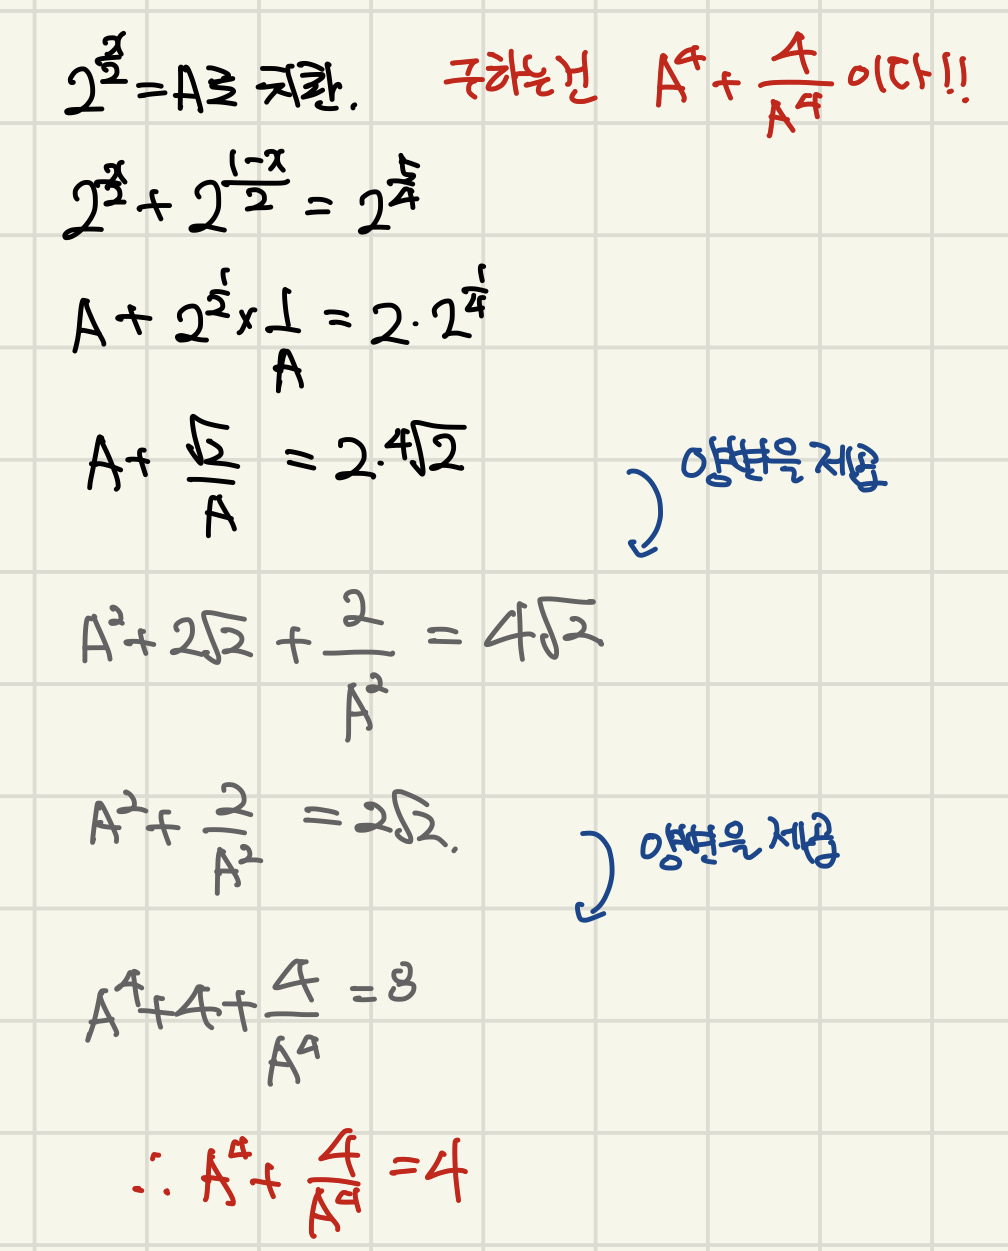 2^{x/2} = A로 치환. 구하는건 A⁴ + 4/A⁴ 이다!!
2^{x/2} + 2^{(1-x)/2} = 2^{5/4}
A + 2^{1/2} × 1/A = 2 · 2^{1/4}
A + √2/A = 2·⁴√2 양변을 제곱
A² + 2√2 + 2/A² = 4√2
A² + 2/A² = 2√2. 양변을 제곱
A⁴ + 4 + 4/A⁴ = 8
∴ A⁴ + 4/A⁴ = 4